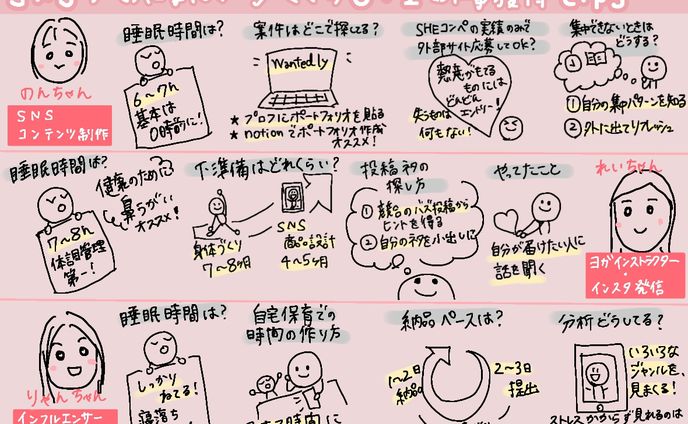 睡眠時間は?
6〜7h
基本は
0時前に!
のんちゃん
SNS
コンテンツ制作
案件はどこで探してる?
Wantedly
★プロフにポートフォリオを貼る
★notionでポートフォリオ作成
オススメ!
SHEコンペの実績のみで
外部サイト応募してOK?
熱意がもてる
ものには
どんどん
エントリー!
失うものは
何もない!
集中できないときは
どうする?
①自分の集中パターンを知る
②外に出てリフレッシュ
睡眠時間は?
健康のために
鼻うがい
オススメ!
7〜8h
体調管理
第一!
下準備はどれくらい?
身体づくり
7〜8ヶ月
SNS
商品設計
4〜5ヶ月
投稿ネタの
探し方
①競合のバズ投稿から
ヒントを得る
②自分のネタを小出しに
やってたこと
自分が届けたい人に
話を聞く
れいちゃん
ヨガインストラクター・
インスタ発信
りゃんちゃん
インフルエンサー
睡眠時間は?
しっかり
ねてる!
寝落ち
自宅保育での
時間の作り方
時間に
納品ペースは?
1〜2日
納品
2〜3日
提出
分析どうしてる?
いろいろな
ジャンルを、
見まくる!
ストレスかからず見れるのは